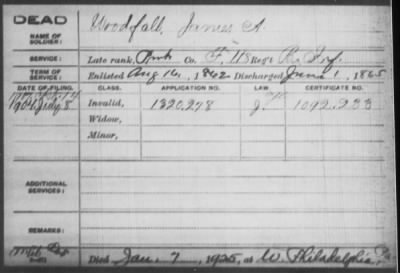 DEAD
NAME OF SOLDIER: Woodfall, James A.
SERVICE: Late rank, Priv. Co. F, 118 Regt Pa. Inf.
TERM OF SERVICE: Enlisted Aug 16, 1862 Discharged June 1, 1865
DATE OF FILING. CLASS. APPLICATION NO. LAW CERTIFICATE NO.
1904 July 8 Invalid, 1320,278 1092,233
Widow,
Minor,
ADDITIONAL SERVICES:
REMARKS:
Died Jan. 7, 1925, at W. Philadelphia, Pa